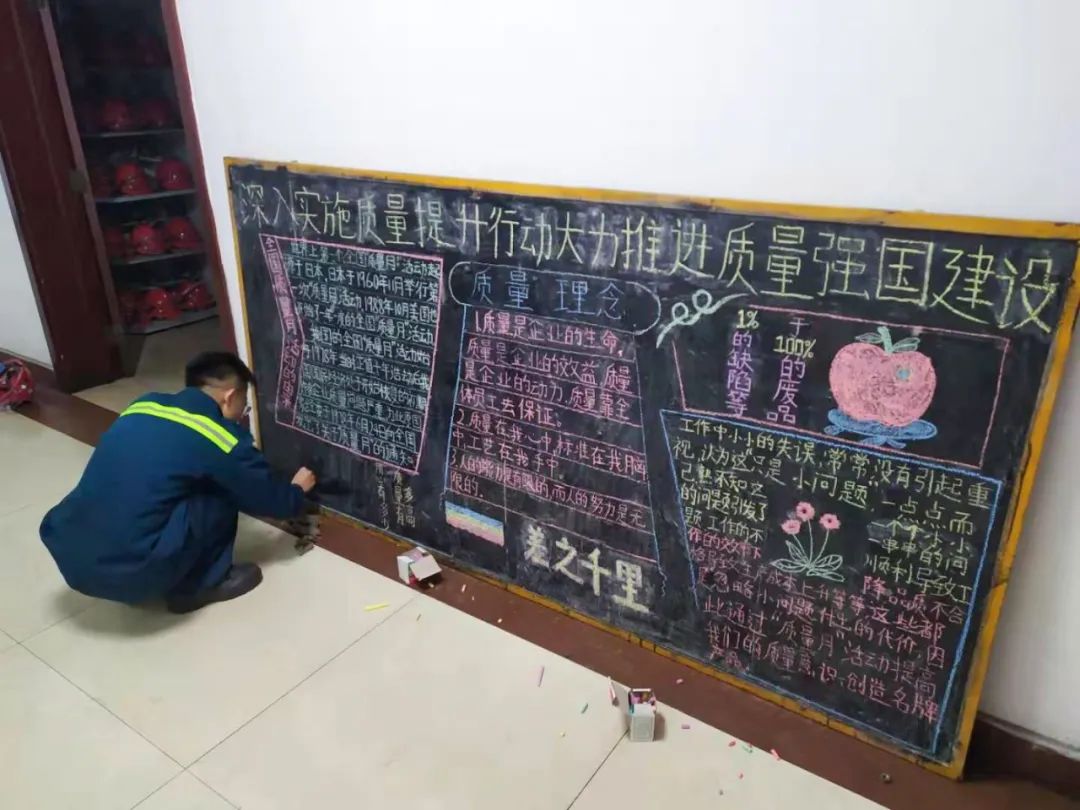 深入实施质量提升行动大力推进质量强国建设
全国质量月的由来
世界上第一个"全国质量月"活动起
源于日本,日本于1960年11月举行第
一次"质量月"活动 1988年10月美国也
我国的"全国质量月"活动始
于1978年
质量理念
1.质量是企业的生命,
质量是企业的效益 质量
是企业的动力,质量靠全
体员工去保证。
2.质量在我心中,标准在我脑
中,工艺在我手中
3.人的能力是有限的,而人的努力是无
限的.
差之千里
1%的缺陷等
于100%的废品
工作中小小的失误,常常没有引起重
视,认为这"只是小问题"
一点点而
已 熟不知这一个个小小
的问题引发了一串串的问
题 工作的不顺利导致工
作的效率下降品质不合
格导致生产成本上升等等这些都
是忽略"小问题"付出的代价,因
此通过"质量月"活动提高
我们的质量意识,创造名牌
产品